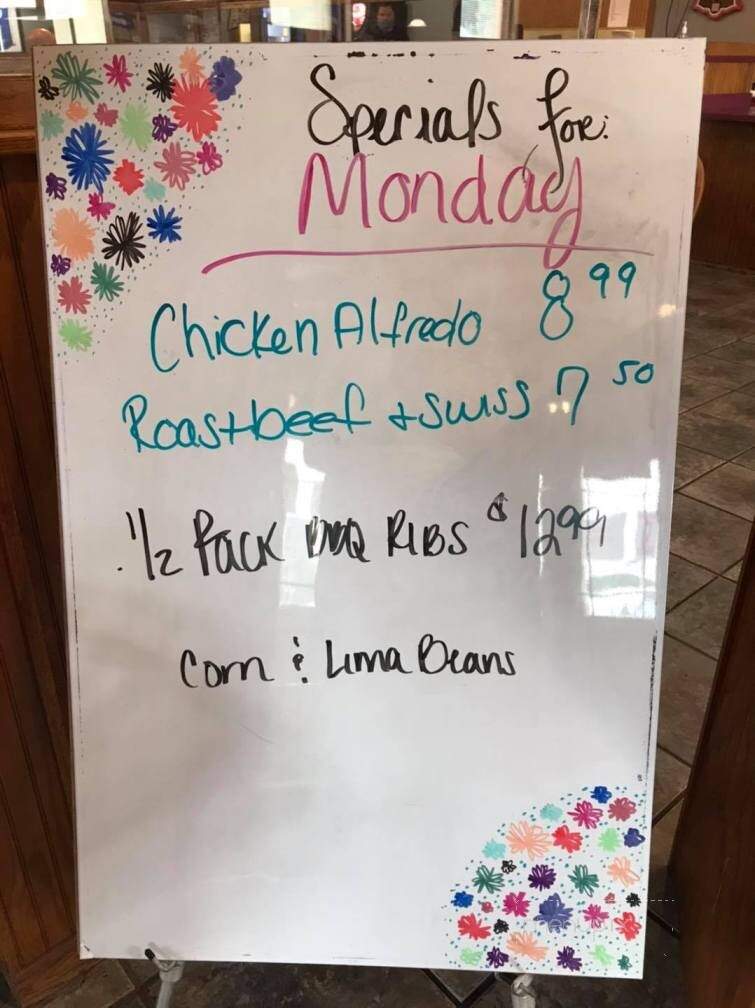 Specials for:
Monday
Chicken Alfredo 8 99
Roastbeef + swiss 7 50
1/2 Rack BBQ RIBS $12 99
Corn & Lima Beans